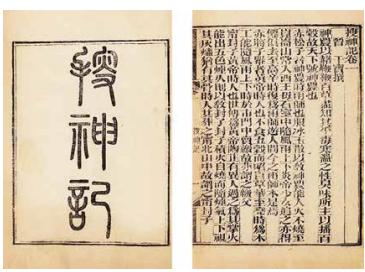 搜神記
搜神記卷一
晉 干寶撰
神農以赭鞭鞭百草盡知其平毒寒溫之性臭味所主以播百
穀故天下號神農也
赤松子者神農時雨師也服冰玉散以教神農能入火不燒至
崑崙山常入西王母石室中隨風雨上下炎帝少女追之亦得
仙俱去至高辛時復為雨師遊人間今之雨師本是焉
赤將子轝者黃帝時人也不食五穀而啖百草華至堯時為木
工能隨風雨上下時於市門中賣繳故亦謂之繳父
甯封子黃帝時人也世傳為黃帝陶正有異人過之為其掌火
能出五色煙久則以教封子封子積火自燒而隨煙氣上下視
其灰燼猶有其骨時人共葬之甯北山中故謂之甯封子